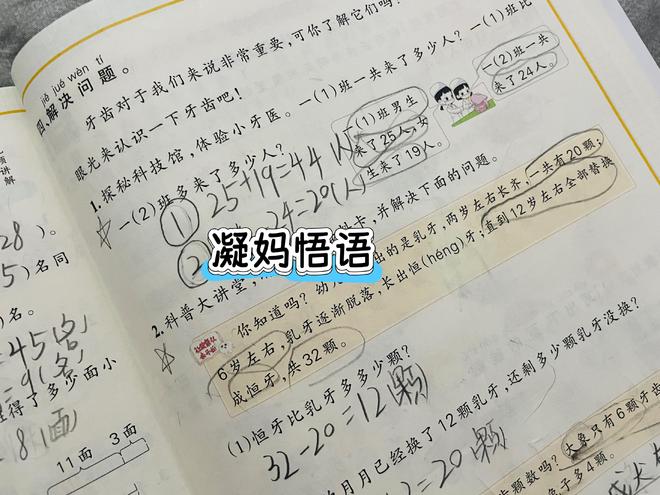 jiě jué wèn tí
四、解决问题。
牙齿对于我们来说非常重要,可你了解它们吗?
眼光来认识一下牙齿吧!
1. 探秘科技馆,体验小牙医。一(1)班一共来了多少人?一(1)班比
一(2)班多来了多少人?
(1)班男生
来了25人,女
生来了19人。
一(2)班一共
来了24人。
① 25+19=44(人)
② 24=20(人)
凝妈悟语
2. 科普大讲堂,
卡,并解决下面的问题。
你知道吗?幼
出的是乳牙,两岁左右长齐,一共有20颗;
6岁左右,乳牙逐渐脱落,长出恒(héng)牙;直到12岁左右全部替换
成恒牙,共32颗。
(1)恒牙比乳牙多多少颗?
32-20=12颗
月月已经换了12颗乳牙,还剩多少颗乳牙没换?
=20颗
颗数吗?大象只有6颗牙齿
子多4颗。
项讲解
28)。
5)名同
)名。
=45(名)
=9(名)
得了多少面小
81面
11面 3面